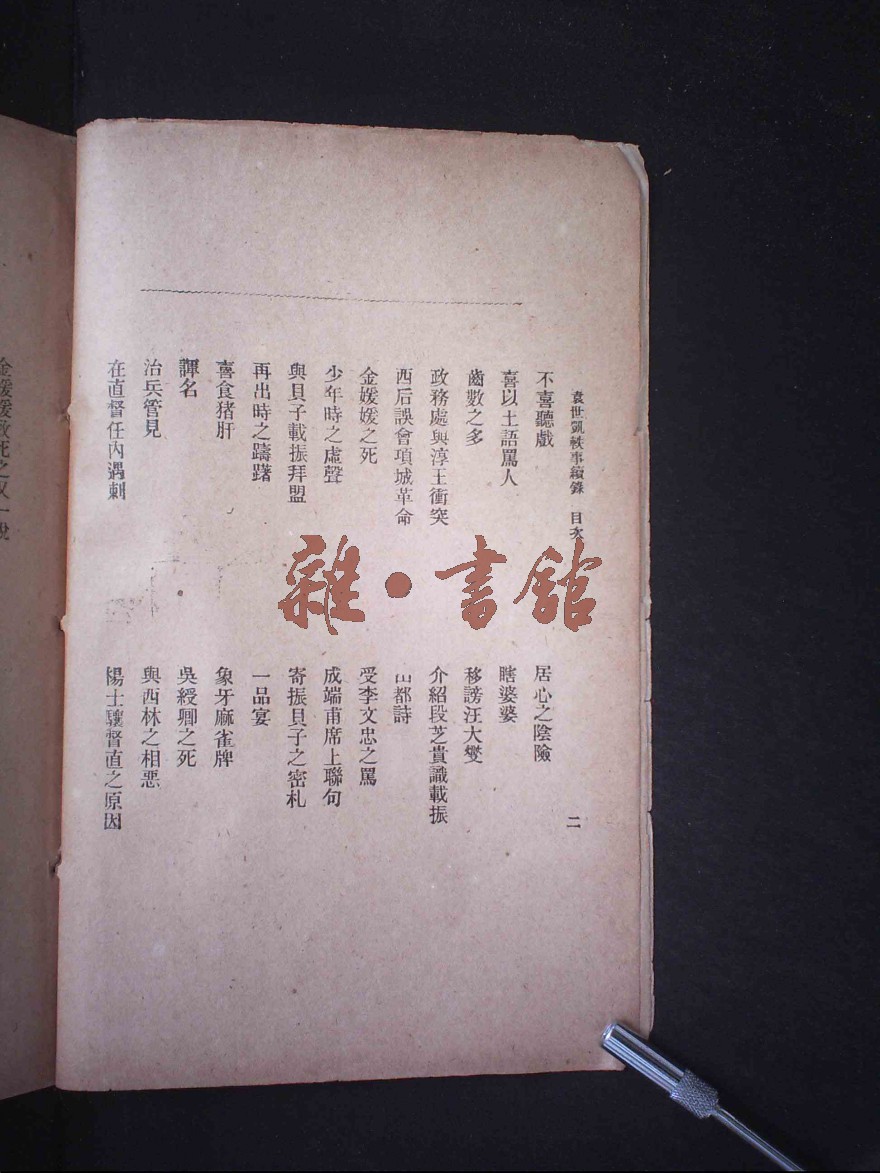 袁世凱軼事續錄 目次 二
不喜聽戲
居心之陰險
喜以土語罵人
瞎婆婆
齒數之多
移謗汪大燮
政務處與淳王衝突
介紹段芝貴識載振
西后誤會項城革命
出都詩
金媛媛之死
受李文忠之罵
少年時之虛聲
成端甫席上聯句
與貝子載振拜盟
寄振貝子之密札
再出時之躊躇
一品宴
喜食猪肝
象牙麻雀牌
諢名
吳綬卿之死
治兵管見
與西林之相惡
在直督任內遇刺
楊士驤督直之原因
雜·書館